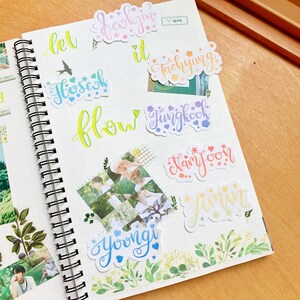 let
Seokjin
it
Taehyung
Hoseok
flow
Jungkook
Namjoon
Jimin
Yoongi